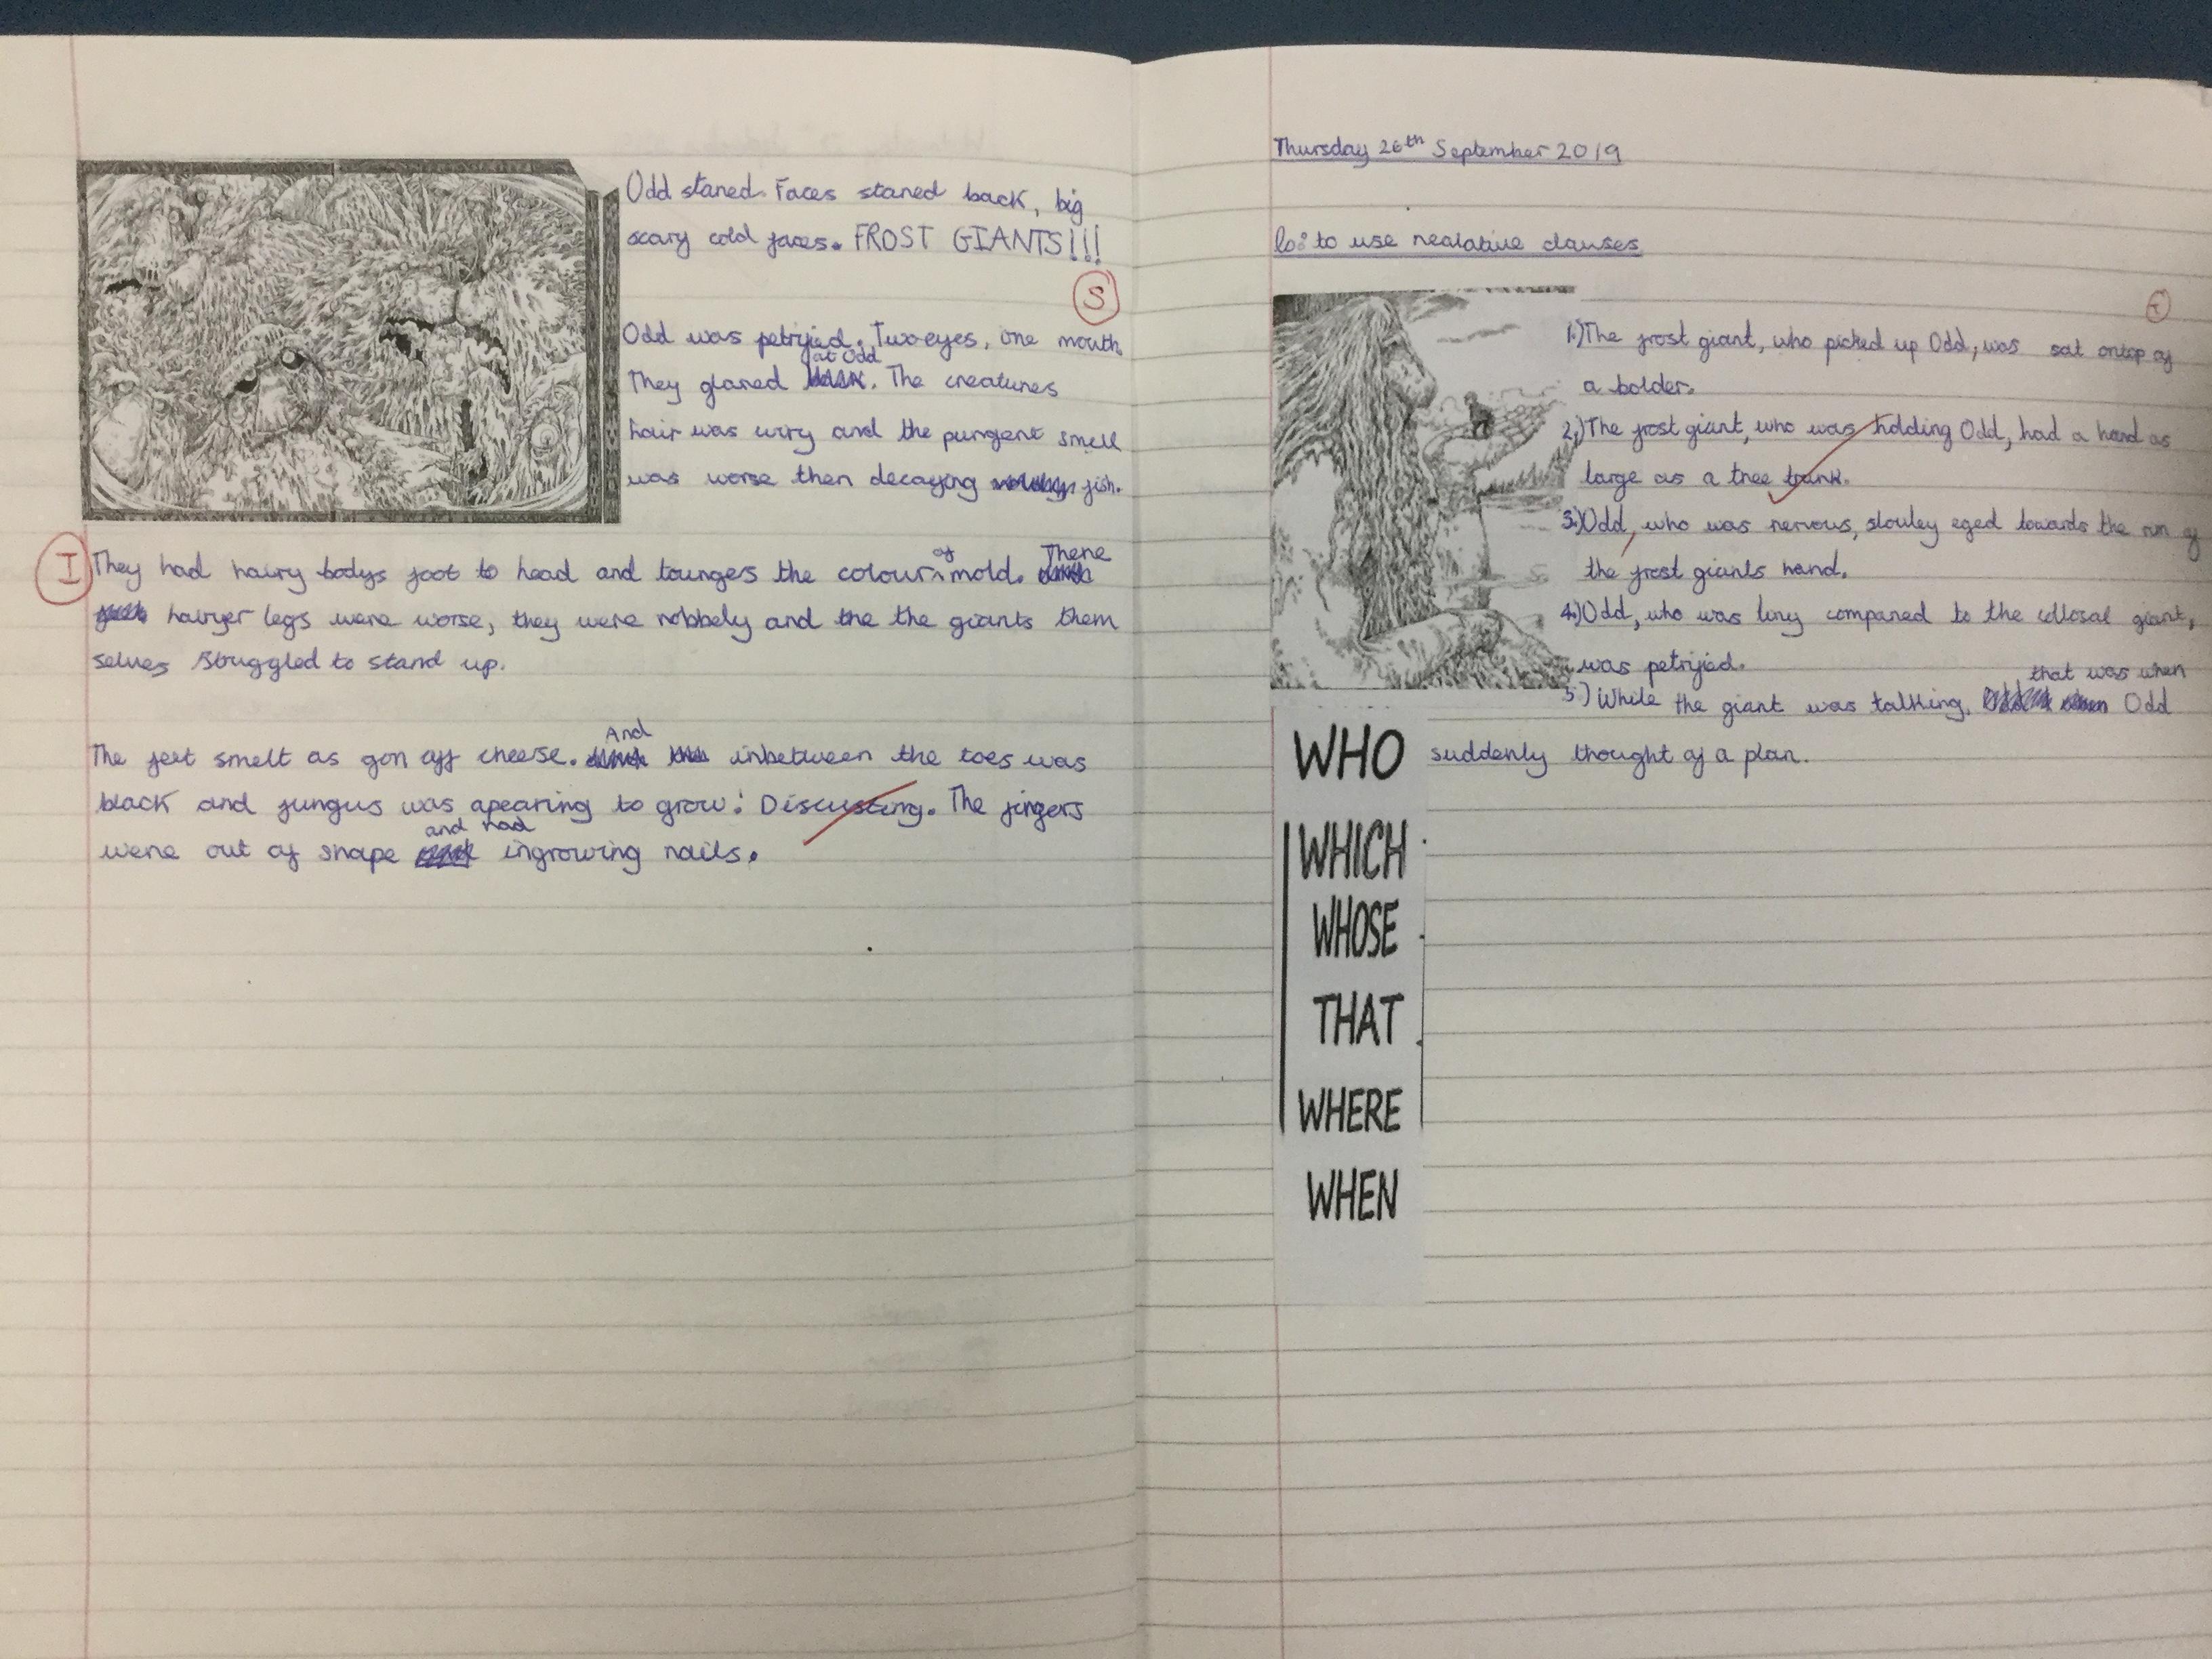 Odd stared. Faces stared back, big
scary cold faces. FROST GIANTS!!!
S
Odd was petrified. Two eyes, one mouth
at Odd
They glared . The creatures
hair was wiry and the pungent smell
was worse then decaying fish.
I They had hairy bodys foot to head and tounges the colour of mold. There
hairyer legs were worse, they were nobbely and the the giants them
selves struggled to stand up.
And
The feet smelt as gon off cheese. inbetween the toes was
black and fungus was apearing to grow! Discusting. The fingers
and had
were out of shape ingrowing nails.
Thursday 26th September 2019
lo: to use realative clauses
1.) The frost giant, who picked up Odd, was sat ontop of
a bolder.
2.) The frost giant, who was holding Odd, had a hand as
large as a tree trunk.
3.) Odd, who was nervous, slouley eged towards the rim of
the frost giants hand.
4.) Odd, who was tiny compared to the collosal giant,
was petrified.
that was when
5.) While the giant was talking, Odd
suddenly thought of a plan.
WHO
WHICH
WHOSE
THAT
WHERE
WHEN